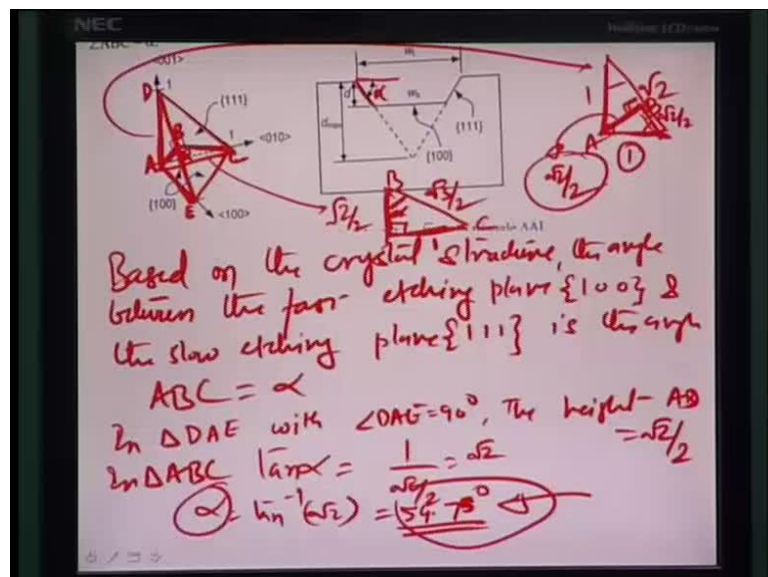 NEC
∠ABC = α
<001>
D 1
{111}
B
1
<010>
A
C
{100}
E
<100>
α
{111}
{100}
1
√2
√2/2
A
1
√2/2
B
√3/2
√2/2
α
C
Based on the crystal structure, the angle
between the fast etching plane {100} &
the slow etching plane {111} is the angle
ABC = α
In ΔDAE with ∠DAE = 90°, The height AB
= √2/2
In ΔABC Tan α = 1/(√2/2) = √2
α = tan⁻¹(√2) = 54.75°